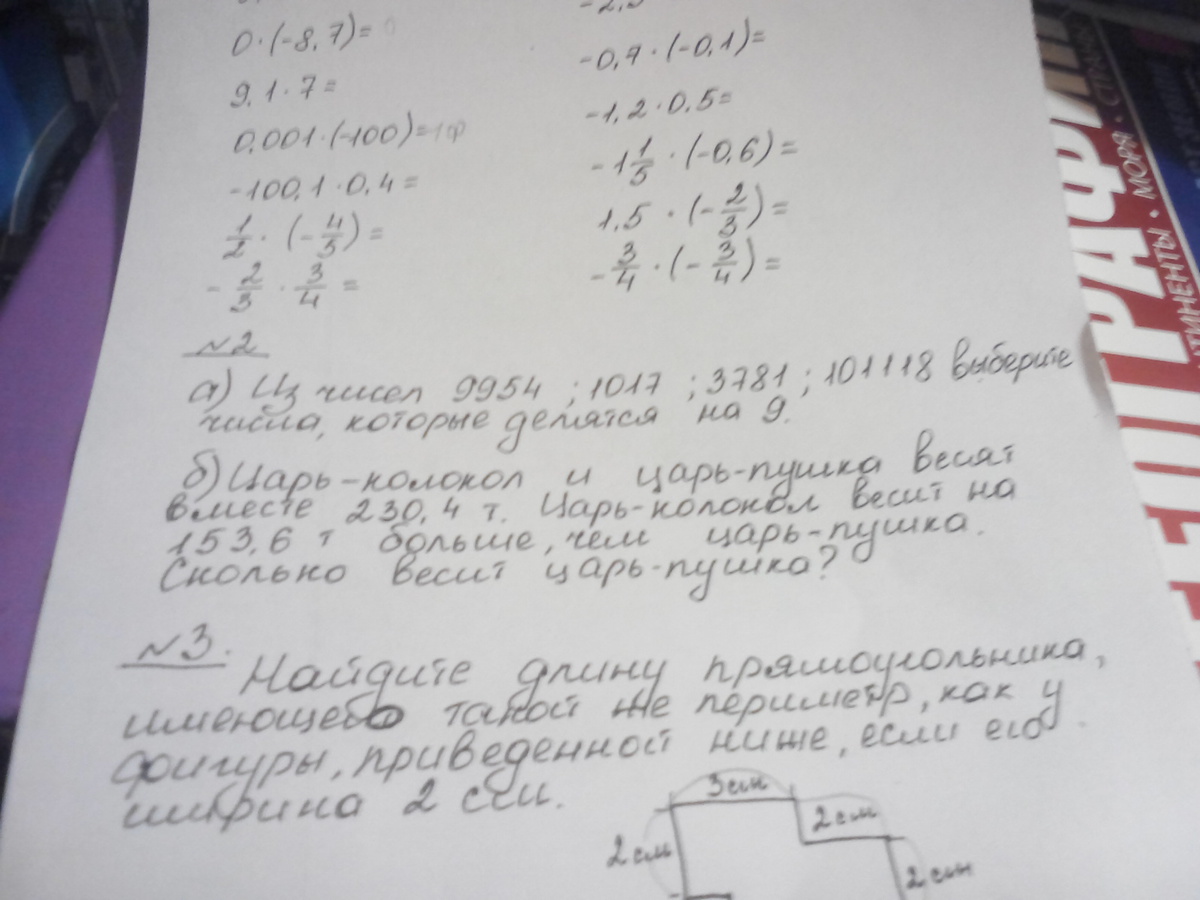 0·(-8,7)=
-0,7·(-0,1)=
9,1·7=
-1,2·0,5=
0,001·(-100)=
-1 1/5 · (-0,6)=
-100,1·0,4=
1,5 · (-2/3)=
1/2 · (-4/5)=
-3/4 · (-3/4)=
-2/3 · 3/4 =
№2
а) Из чисел 9954 ; 1017 ; 3781 ; 101118 выберите
числа, которые делятся на 9.
б) Царь-колокол и царь-пушка весят
вместе 230,4 т. Царь-колокол весит на
153,6 т больше, чем царь-пушка.
Сколько весит царь-пушка?
№3.
Найдите длину прямоугольника,
имеющего такой же периметр, как у
фигуры, приведенной ниже, если его
ширина 2 см.
3см
2см
2см
2см
МОРЯ · СТРАНЫ
ТИНЕНТЫ